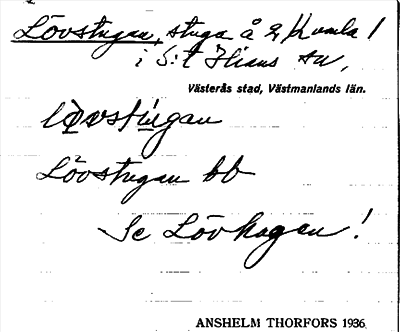 Lövstugan, stuga å 2/ Kumla /
i S:t Ilians sn,
Västerås stad, Västmanlands län.
lövstugan
Lövstugan bb
Se Lövhagen!
ANSHELM THORFORS 1936.